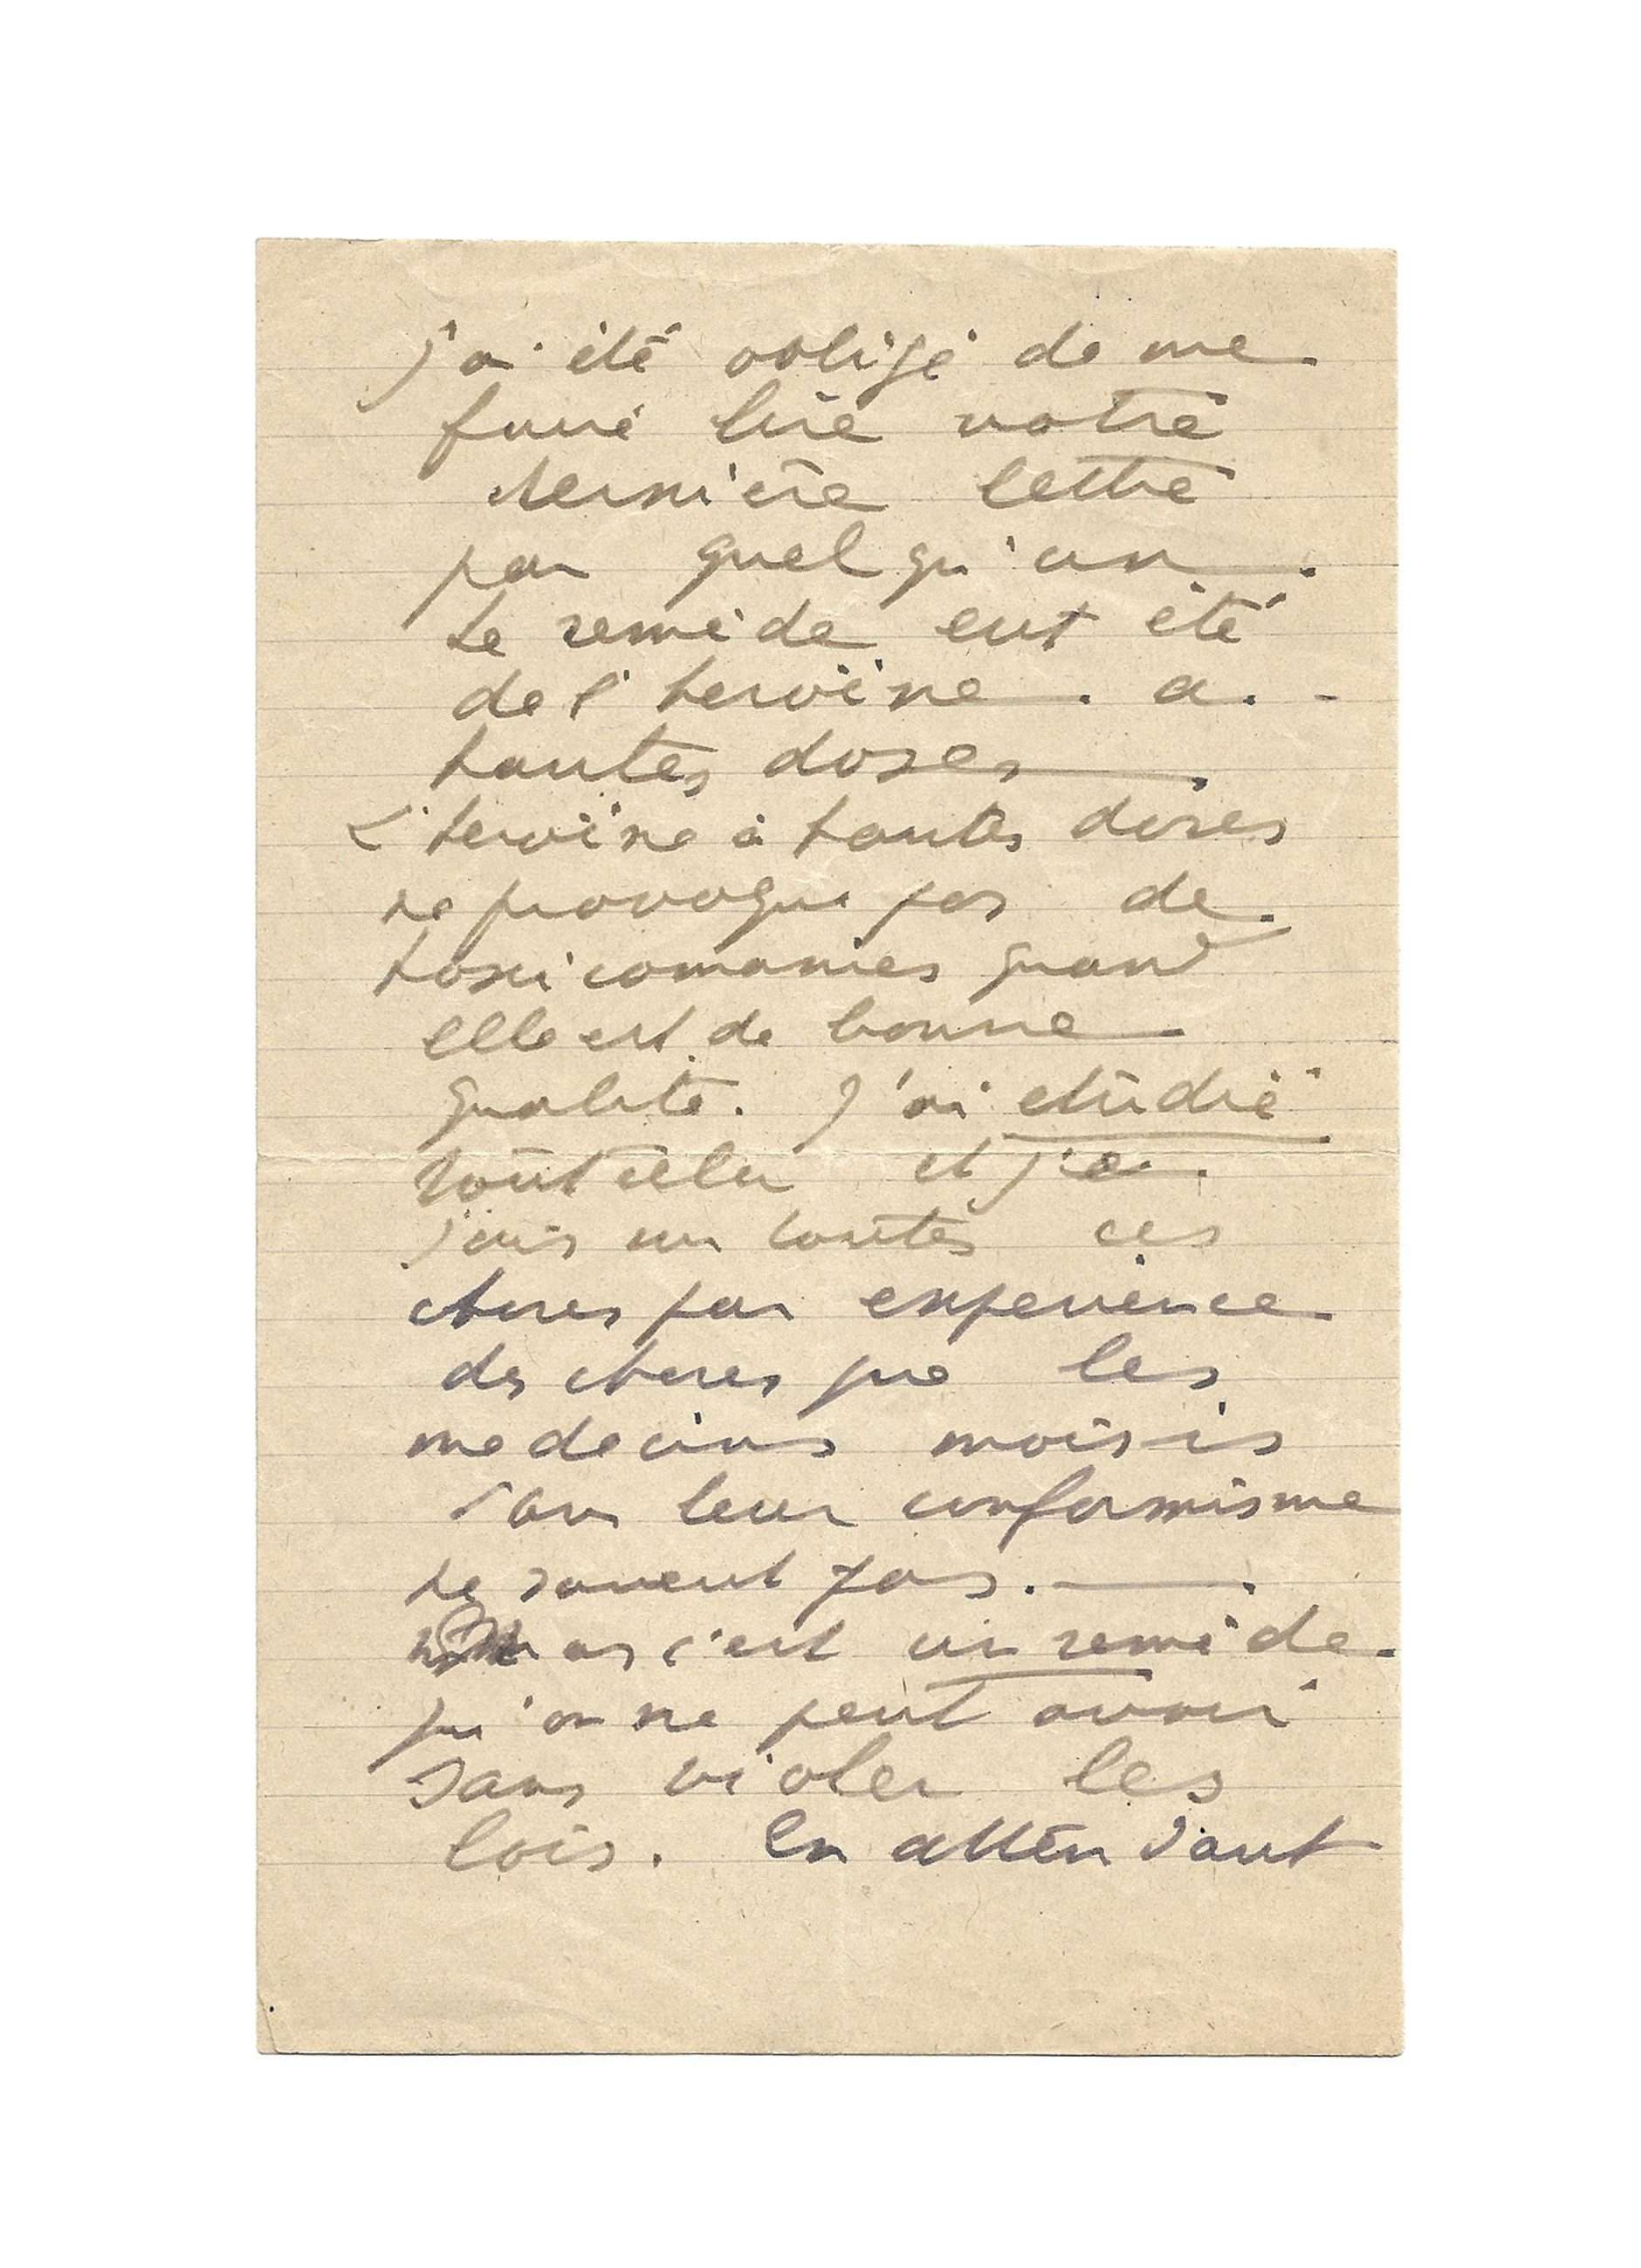 j'ai été obligé de me
faire lire votre
dernière lettre
par quelqu'un.
Le remède eut été
de l'heroïne. à
hautes doses.
L'heroïne à hautes doses
ne provoque pas de
toxicomanies quand
elle est de bonne
qualité. J'ai etudié
tout cela et je
sais sur toutes ces
choses par experience
des choses que les
medecins moisis
dans leur conformisme
ne savent pas.
c'est un remède
qu'on ne peut avoir
sans violer les
lois. En attendant